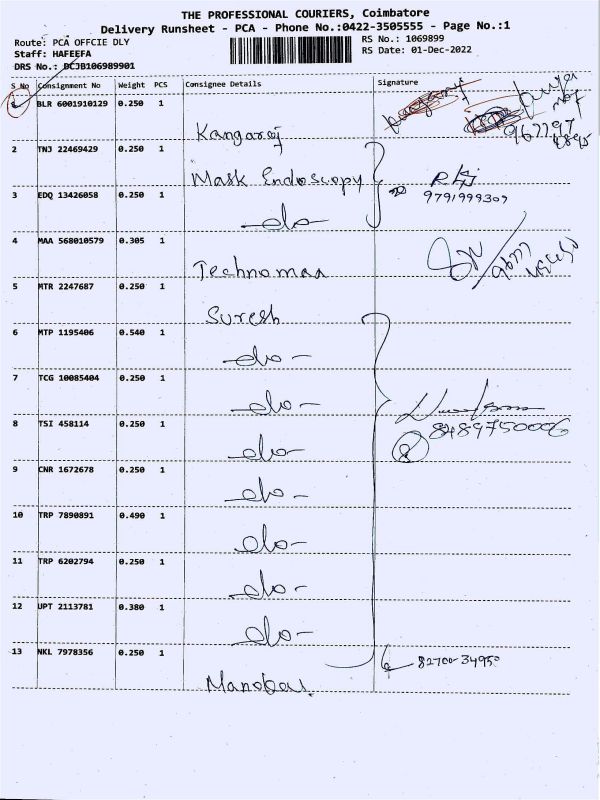 THE PROFESSIONAL COURIERS, Coimbatore
Delivery Runsheet - PCA - Phone No.:0422-3505555 - Page No.:1
Route: PCA OFFCIE DLY
RS No.: 1069899
Staff: HAFEEFA
RS Date: 01-Dec-2022
DRS No.: DCJB106989901
S No Consignment No Weight PCS Consignee Details Signature
1 BLR 6001910129 0.250 1 Kangaraj
2 TNJ 22469429 0.250 1 Mask Endoscopy
3 EDQ 13426058 0.250 1 -do-
9791999309
4 MAA 568010579 0.305 1 Technomaa
5 MTR 2247687 0.250 1 Suresh
6 MTP 1195406 0.540 1 -do-
7 TCG 10085404 0.250 1 -do-
8 TSI 458114 0.250 1 -do-
8489750006
9 CNR 1672678 0.250 1 -do-
10 TRP 7890891 0.490 1 -do-
11 TRP 6202794 0.250 1 -do-
12 UPT 2113781 0.380 1 -do-
13 NKL 7978356 0.250 1 82700-34950